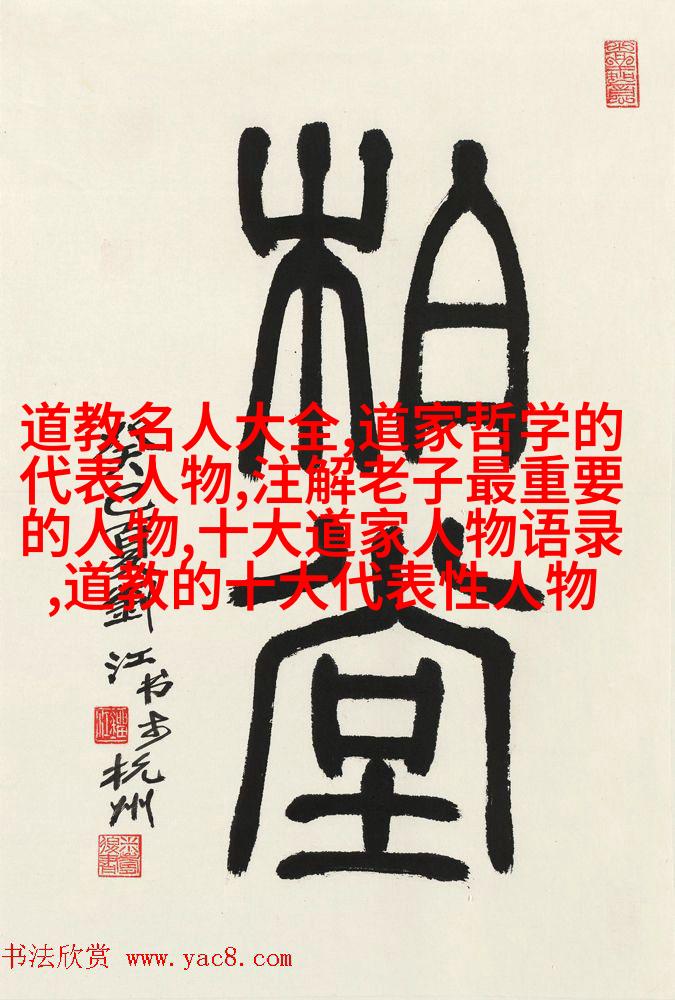 柏堂
癸巳夏劉江书于杭州
道教名人大全,道家哲学的
代表人物,注解老子最重要
的人物,十大道家人物语录
,道教的十大代表性人物
书法欣赏 www.yac8.com